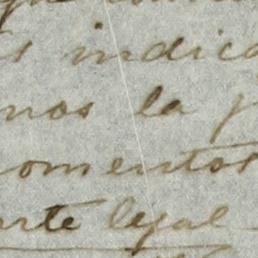 s indica
nos la p
omentos
arte legal